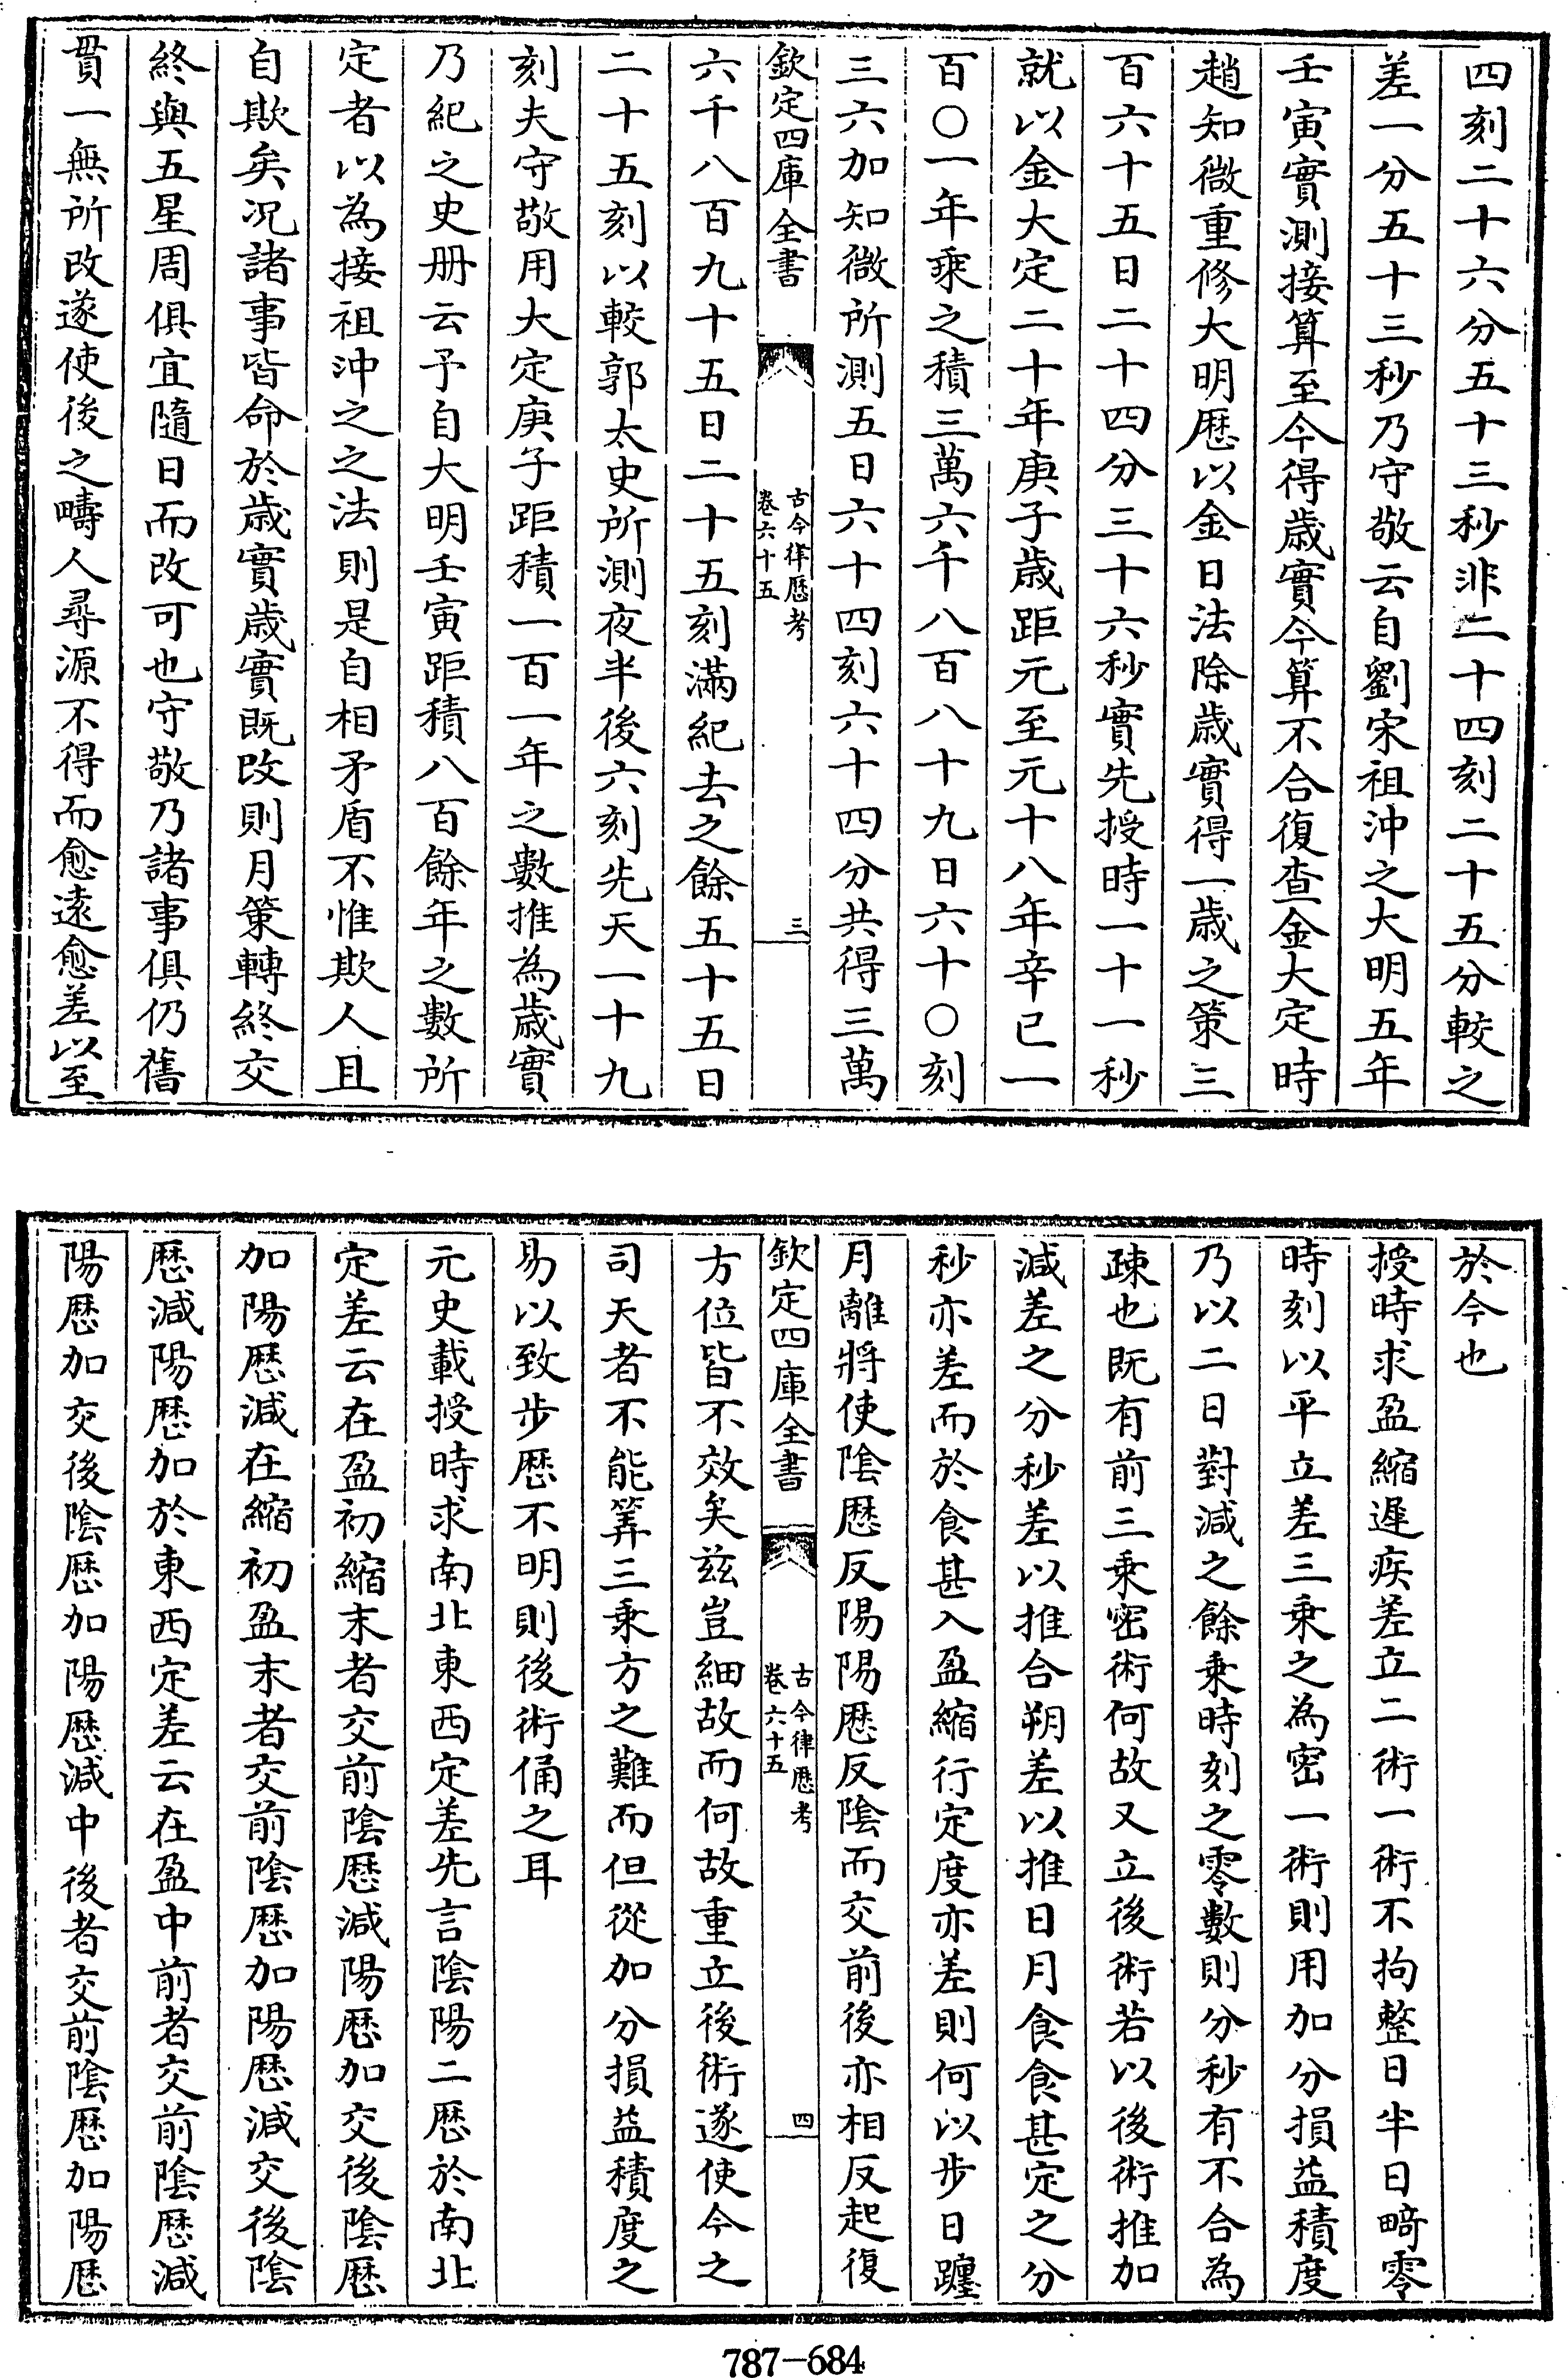 四刻二十六分五十三秒非二十四刻二十五分較之
差一分五十三秒乃守敬云自劉宋祖沖之大明五年
壬寅實測接算至今得歲實今算不合復查金大定時
趙知微重修大明厯以金日法除歲實得一歲之策三
百六十五日二十四分三十六秒實先授時一十一秒
就以金大定二十年庚子歲距元至元十八年辛已一
百〇一年乘之積三萬六千八百八十九日六十〇刻
三六加知微所測五日六十四刻六十四分共得三萬
欽定四庫全書
古今律厯考
卷六十五
三
六千八百九十五日二十五刻滿紀去之餘五十五日
二十五刻以較郭太史所測夜半後六刻先天一十九
刻夫守敬用大定庚子距積一百一年之數推為歲實
乃紀之史册云予自大明壬寅距積八百餘年之數所
定者以為接祖沖之之法則是自相矛盾不惟欺人且
自欺矣况諸事皆命於歲實歲實既改則月策轉終交
終與五星周俱宜隨日而改可也守敬乃諸事俱仍舊
貫一無所改遂使後之疇人尋源不得而愈逺愈差以至
於今也
授時求盈縮遲疾差立二術一術不拘整日半日畸零
時刻以平立差三乗之為密一術則用加分損益積度
乃以二日對減之餘乗時刻之零數則分秒有不合為
疎也既有前三乗密術何故又立後術若以後術推加
減差之分秒差以推合朔差以推日月食食甚定之分
秒亦差而於食甚入盈縮行定度亦差則何以步日躔
月離將使陰厯反陽陽厯反陰而交前後亦相反起復
欽定四庫全書
古今律厯考
卷六十五
四
方位皆不效矣兹豈細故而何故重立後術遂使今之
司天者不能筭三乗方之難而但從加分損益積度之
易以致步厯不明則後術俑之耳
元史載授時求南北東西定差先言陰陽二厯於南北
定差云在盈初縮末者交前陰厯減陽厯加交後陰厯
加陽厯減在縮初盈末者交前陰厯加陽厯減交後陰
厯減陽厯加於東西定差云在盈中前者交前陰厯減
陽厯加交後陰厯加陽厯減中後者交前陰厯加陽厯
787-684